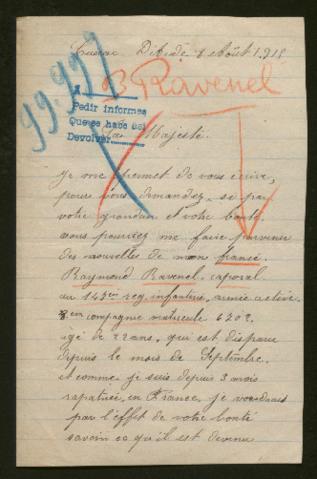 Dibède 1 Août 1915
19.997
B Ravenel
Pedir informes
Que se hace así
Devolver
Sa Majesté
Je me permet de vous écrire,
pour vous demandez, se par
votre grandeur et votre bonté
vous pourriez me faire parvenir
des nouvelles de mon fiancé.
Raymond Ravenel, caporal
au 143em reg. infanterie, armée active
em compagnie matricule 6202
âgé de 22 ans, qui est disparu
depuis le mois de Septembre.
et comme je suis depuis 3 mois
rapatriée, en France, je voudrais
par l'effet de votre bonté
savoir ce qu'il est devenu